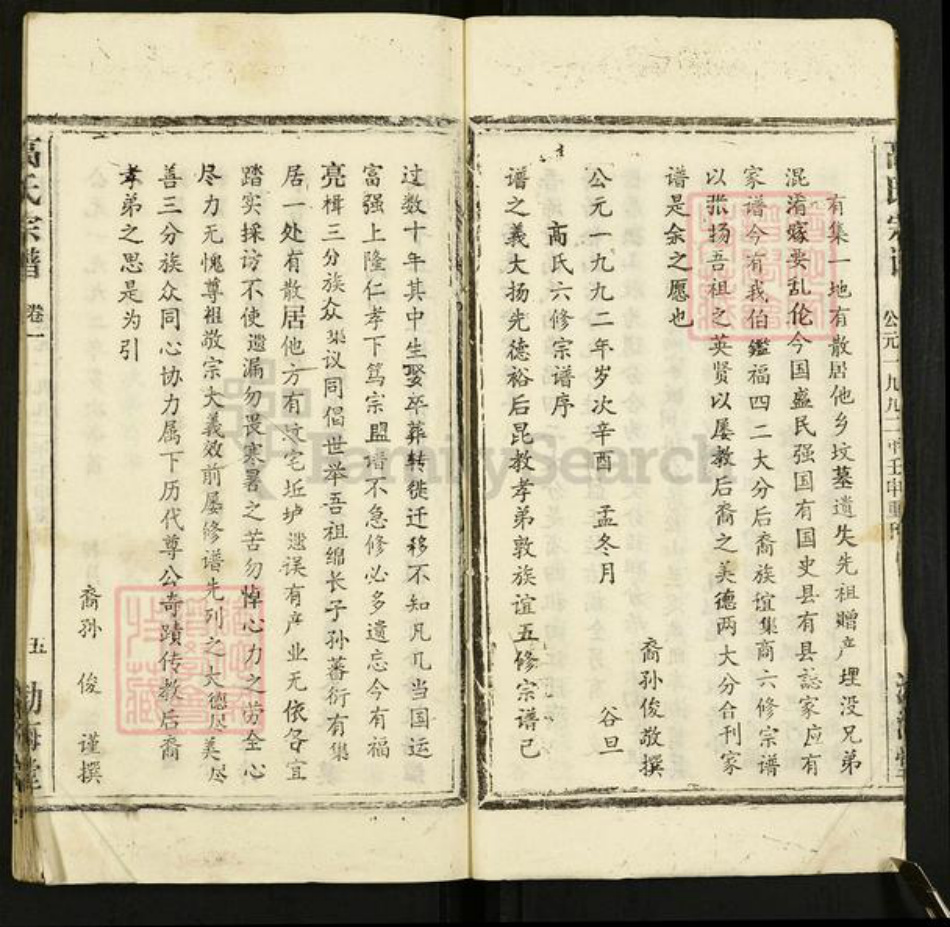 公元一九九二
有集一地有散居他乡坟墓遗失先祖赠产埋没兄弟
混淆嫁娶乱伦今国盛民强国有国史县有县誌家应有
家谱今有我伯鑑福四二大分后裔族谊集商六修宗谱
以张扬吾祖之英贤以屡教后裔之美德两大分合刊家
谱是余之愿也
裔孙俊敬撰
公元一九九二年岁次辛酉 孟冬月 谷旦
高氏六修宗谱序
谱之義大扬先德裕后昆教孝弟敦族谊五修宗谱已
过数十年其中生娶卒葬转徙迁移不知凡几当国运
富强上隆仁孝下篤宗盟谱不急修必多遗忘今有福
亮楫三分族众集议同倡世举吾祖绵长子孙蕃衍有集
居一处有散居他方有坟宅坵垆遗误有产业无依各宜
踏实採访不使遗漏勿畏寒暑之苦勿悼心力之劳全心
尽力无愧尊祖敬宗大義效前屡修谱先列之大德尽美尽
善三分族众同心协力属下历代尊公奇蹟传教后裔
孝弟之思是为引
裔孙 俊 谨撰
高氏宗谱 卷一 五 勃海堂
FamilySearch